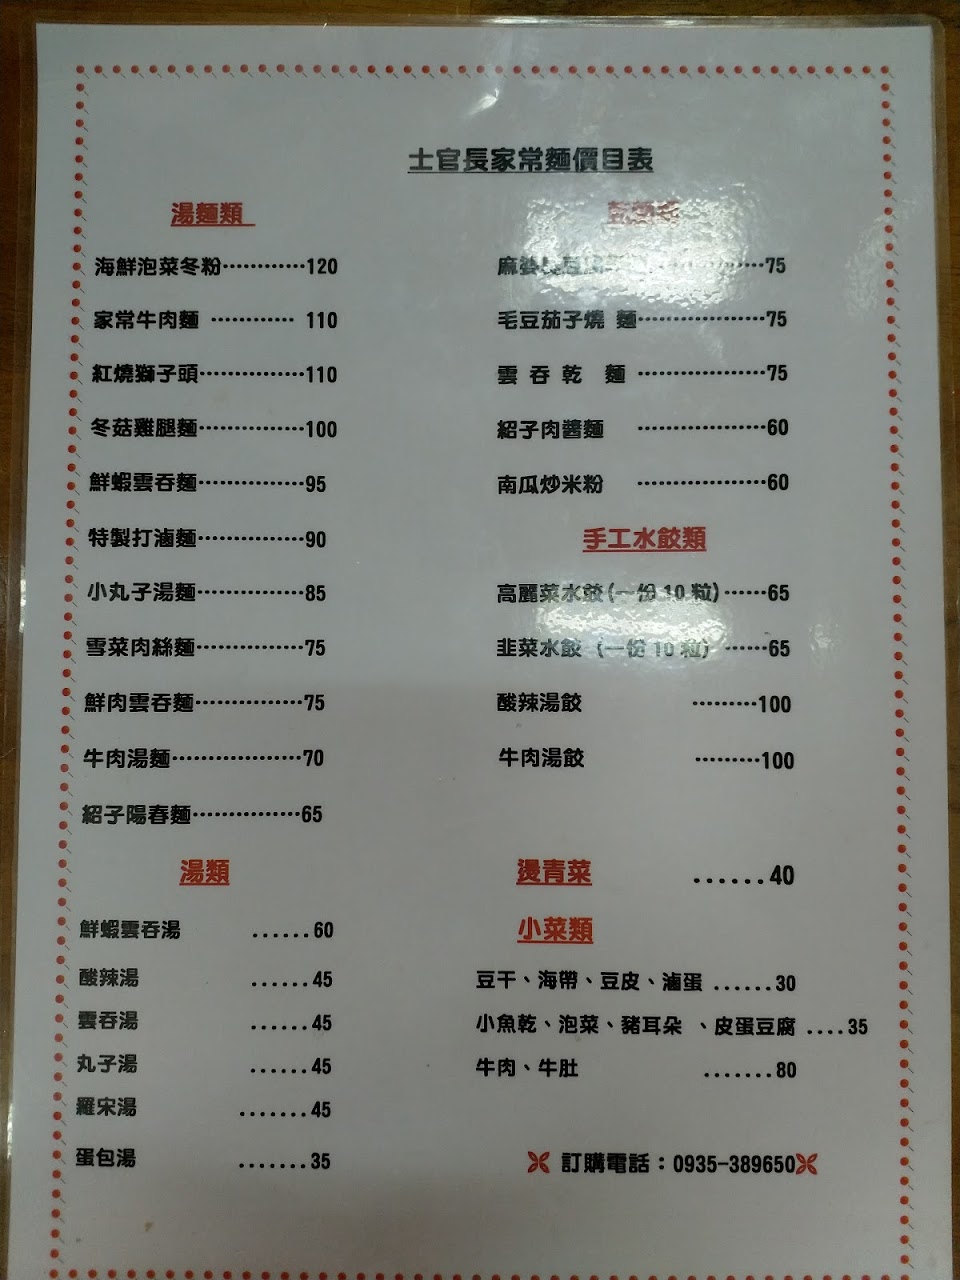 士官長家常麵價目表
湯麵類
海鮮泡菜冬粉············120
家常牛肉麵 ············ 110
紅燒獅子頭···············110
冬菇雞腿麵···············100
鮮蝦雲吞麵···············95
特製打滷麵···············90
小丸子湯麵···············85
雪菜肉絲麵···············75
鮮肉雲吞麵···············75
牛肉湯麵··················70
紹子陽春麵···············65
湯類
鮮蝦雲吞湯 ......60
酸辣湯 ......45
雲吞湯 ......45
丸子湯 ......45
羅宋湯 .......45
蛋包湯 .......35
麻婆 ······75
毛豆茄子燒 麵··················75
雲 吞 乾 麵 ··················75
紹子肉醬麵 ··················60
南瓜炒米粉 ··················60
手工水餃類
高麗菜水餃(一份 10 粒)······65
韭菜水餃 (一份 10 粒) ······65
酸辣湯餃 ·········100
牛肉湯餃 ·········100
燙青菜 ......40
小菜類
豆干、海帶、豆皮、滷蛋 ......30
小魚乾、泡菜、豬耳朵 、皮蛋豆腐 ....35
牛肉、牛肚 .......80
訂購電話：0935-389650